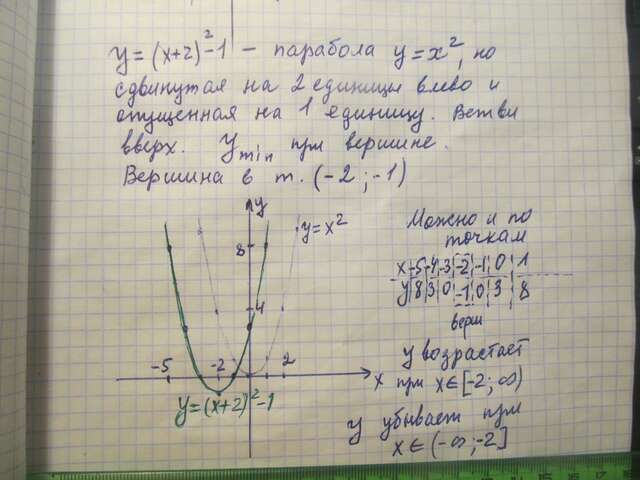 y=(x+2)²-1 – парабола y=x², но
сдвинутая на 2 единицы влево и
опущенная на 1 единицу. Ветви
вверх. y min при вершине.
Вершина в т. (-2;-1)
y
y=x²
8
4
-5
-2
2
x
y=(x+2)²-1
Можно и по
точкам
x -5 -4 -3 -2 -1 0 1
y 8 3 0 -1 0 3 8
верш
y возрастает
при x∈[-2;∞)
y убывает при
x∈(-∞;-2]